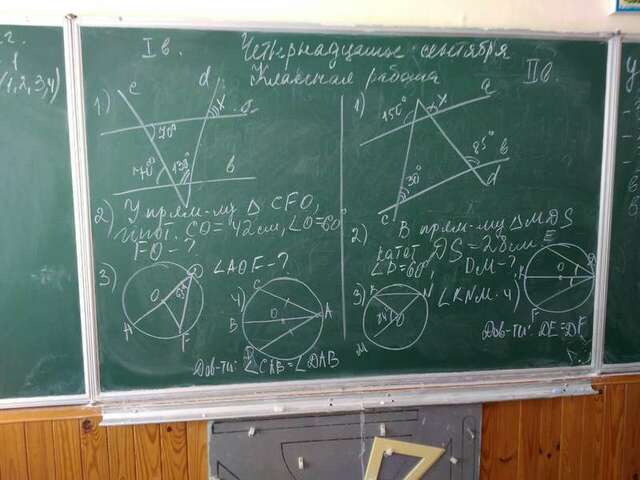 г.
1
(1,2,3,4)
Четырнадцатое сентября
Классная работа
I в.
1)
c
d
x
a
70°
70°
130°
b
2) У прям-му Δ CFO,
гипот. CO = 42 см, ∠O=60°
FO - ?
3)
∠AOF - ?
O
A
F
4)
C
B
A
O
Дов-ти: ∠CAB = ∠DAB
II в.
1)
150°
x
a
85°
b
30°
d
c
2) В прям-му ΔMDS
катет DS = 28 см
∠D = 60°, DM - ?
3)
∠KNM -
K
N
O
M
4)
E
K
O
F
Дов-ти: DE = DF